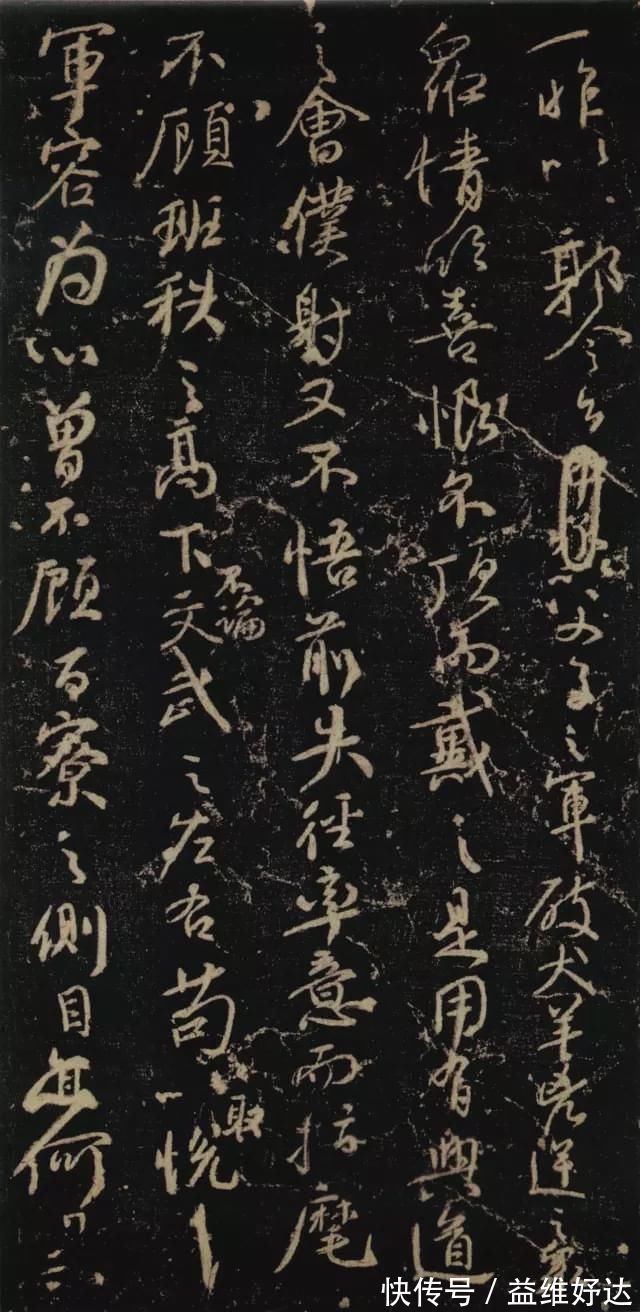 一昨以郭令公以父子之軍破犬羊兇逆之眾
眾情欣喜恨不頂而戴之是用有興道
之會僕射又不悟前失徑率意而指麾
不顧班秩之高下不論文武之左右苟以取悅
軍容為心曾不顧百寮之側目亦何
快传号 / 益维好达